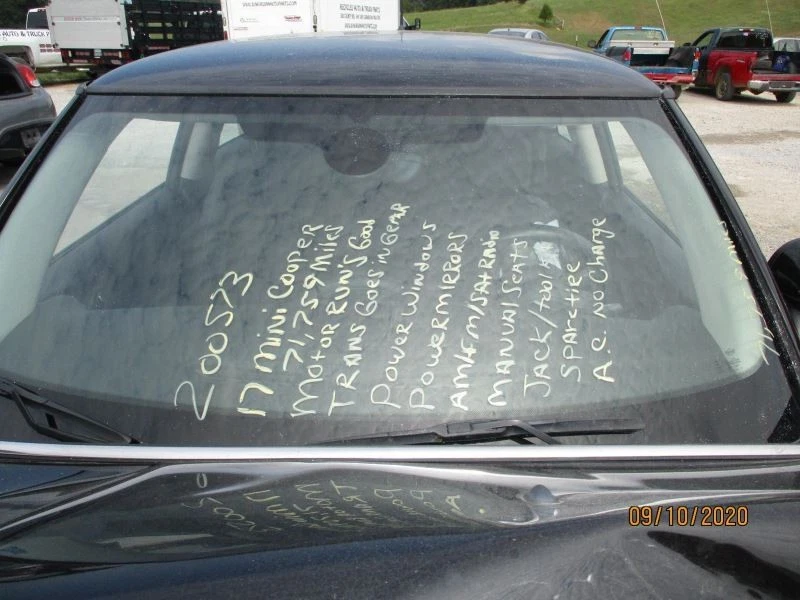 AUTO & TRUCK P
RECYCLED AUTO & TRUCK PARTS
200573
17 Mini Cooper
71,759 Miles
Motor Runs Good
TRANS Goes in Gear
Power Windows
Power MIRRORS
AM/FM/SAT RADIO
MANUAL SeATS
JACK/TOOLS
SPARE TIRE
A.C. NO CHARGE
09/10/2020